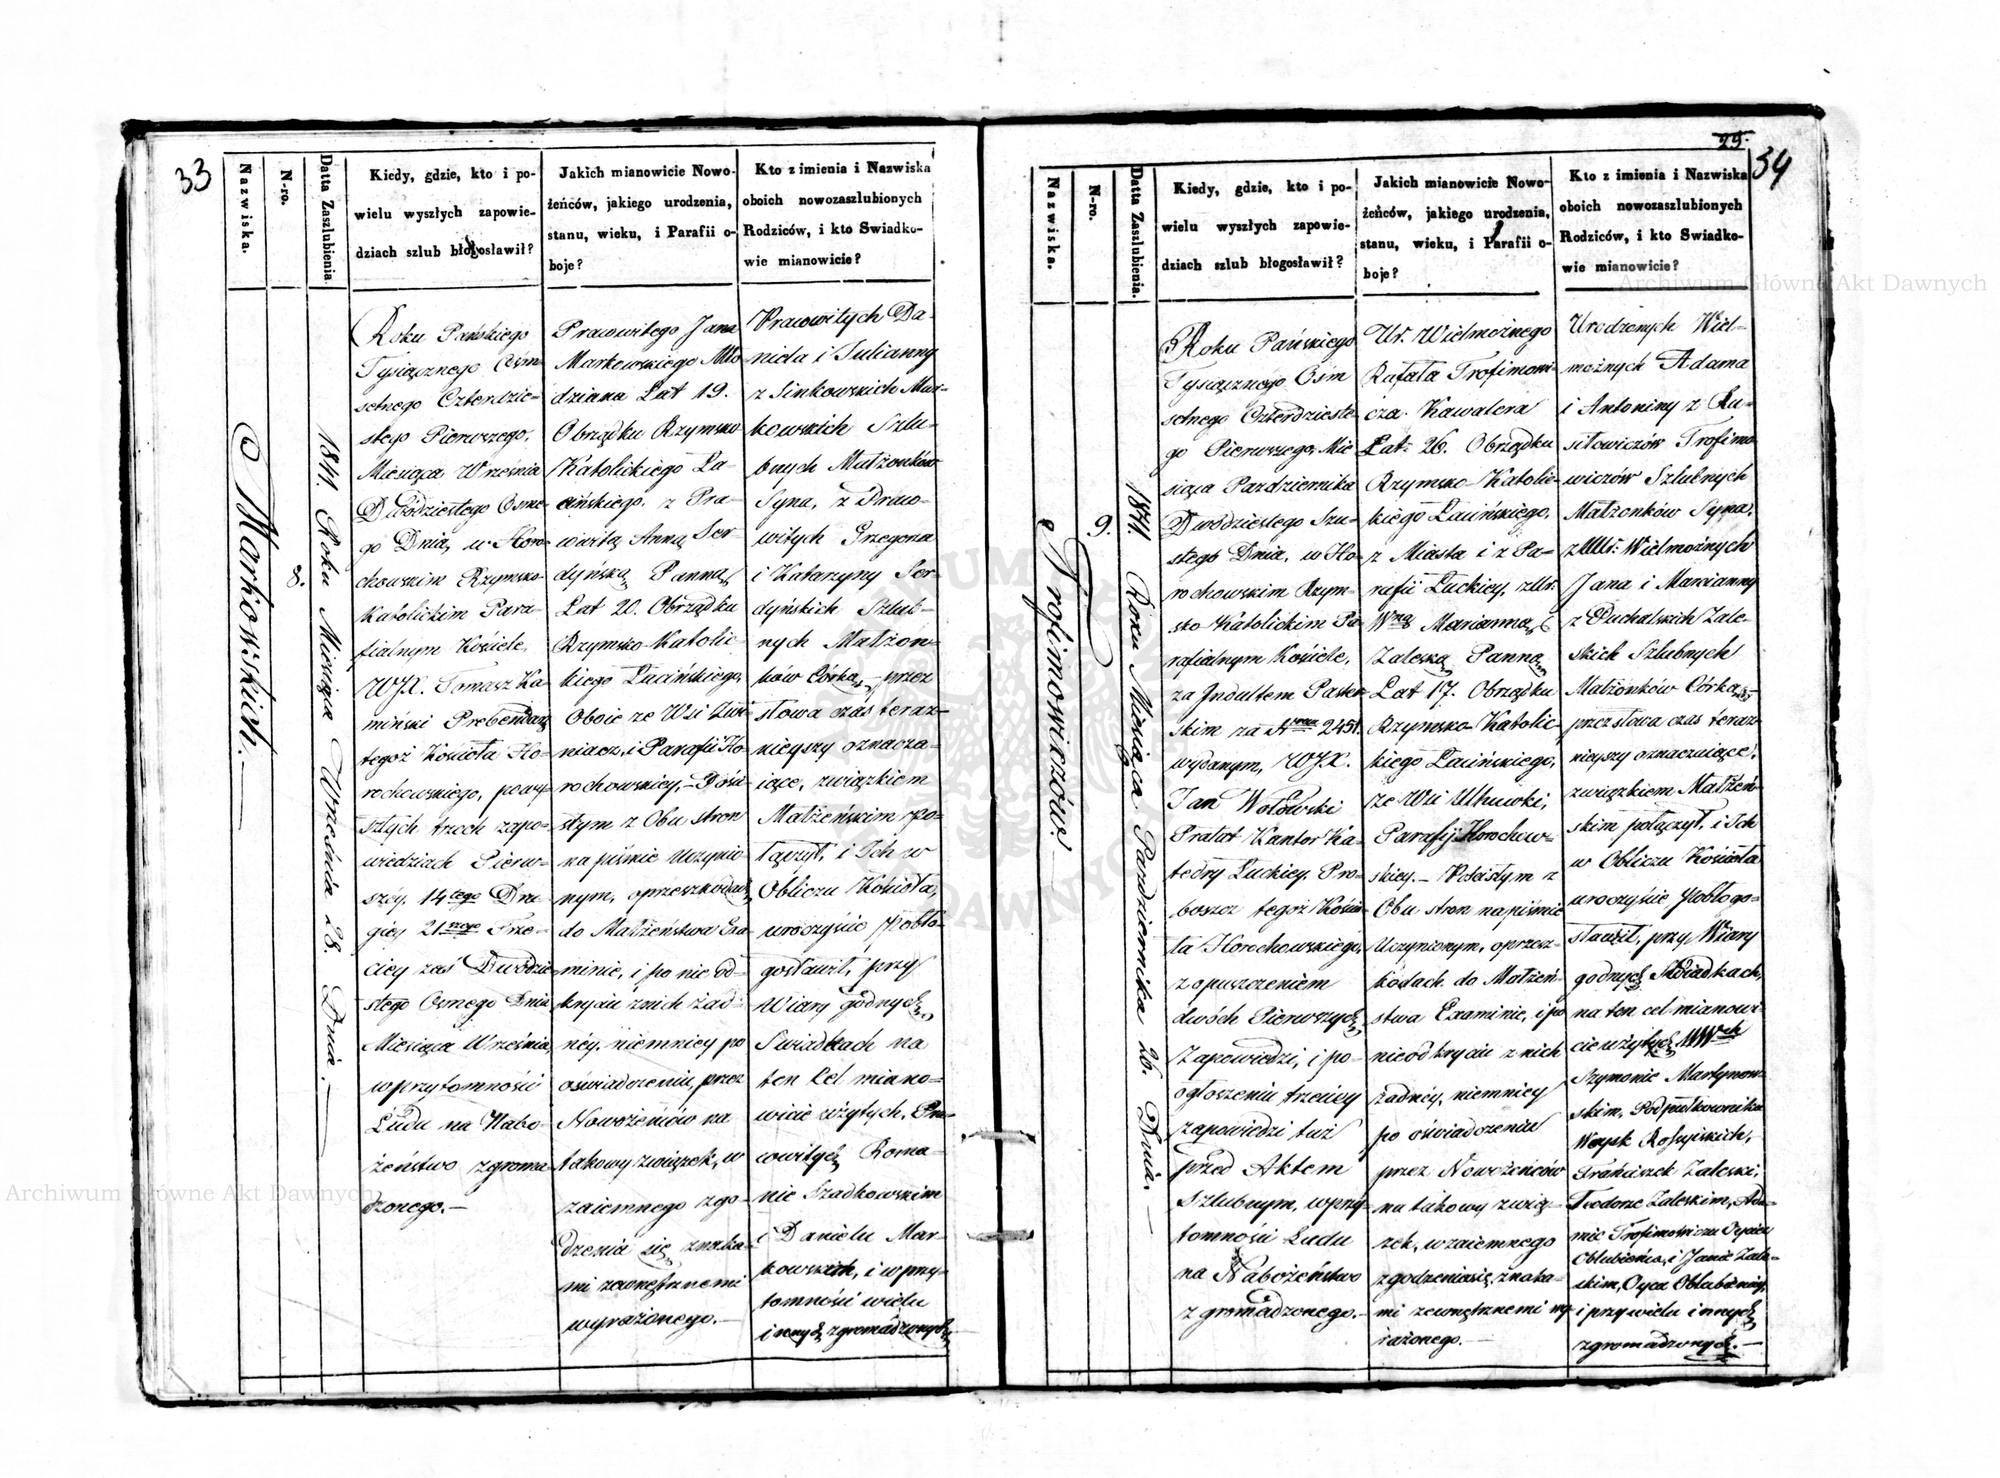 33
Nazwiska.
N-ro.
Datta Zaszlubienia.
Kiedy, gdzie, kto i po-
wielu wyszłych zapowie-
dziach szlub błogosławił?
Jakich mianowicie Nowo-
żeńców, jakiego urodzenia,
stanu, wieku, i Parafii o-
boje?
Kto z imienia i Nazwiska
oboich nowozaszlubionych
Rodziców, i kto Swiadko-
wie mianowicie?
Markowskich.
8.
1841. Roku Miesiąca Września 28. Dnia.
Roku Pańskiego
Tysiącznego Ośm-
setnego Czterdzie-
stego Pierwszego,
Miesiąca Września
Dwódziestego Osme-
go Dnia, w Horo-
chowskim Rzymsko-
Katolickim Para-
fialnym Kościele,
WJX. Tomasz Ka-
miński Prebendarz
tegoż Kościoła Ho-
rochowskiego, powy-
szłych trzech zapo-
wiedziach Pierw-
széy, 14tego Dru-
giéy 21szego Trze-
ciey zaś Dwódzie-
stego Osmego Dnia
Miesiąca Września,
w przytomności
Ludu na Nabo-
żeństwo zgroma-
dzonego.—
Prawowitego Jana
Markowskiego Mło-
dziana Lat 19.
Obrządku Rzymsko
Katolickiego Ła-
cińskiego, z Pra-
wowitą Anną Ser-
dyńską Panną,
Lat 20. Obrządku
Rzymsko-Katolic-
kiego Łacińskiego,
Oboie ze Wsi
i Parafii Ho-
rochowskiey,— Pości-
słym z Obu stron
na piśmie uczynio-
nym, oprzeszkodach
do Małżeństwa Exa-
minie, i po nie od-
kryciu znich żad-
néy, niemniey po
oświadczeniu, przez
Nowożeńców na
takowy związek, w
zaiemnego zgo-
dzenia się znaka-
mi zewnętrznemi
wyrażonego.—
Prawowitych Da-
niela i Julianny
z Sinkowskich Mar-
kowskich Szlu-
bnych Małżonków
Syna, z Prawo-
witych Grzegorza
i Katarzyny Ser-
dyńskich Szlub-
nych Małżon-
ków Córką,— przez
słowa czas teraz-
nieyszy oznacza-
iące, związkiem
Małżeńskim spo-
łączył, i Ich w
Obliczu Kościoła,
uroczyście Pobło-
gosławił, przy
Wiary godnych
Swiadkach na
ten Cel miano-
wicie użytych, Pra-
wowitych Roma-
nie Szadkowskim
i Danielu Mar-
kowskich, i w przy-
tomności wielu
innych zgromadzonych
25.
34
Nazwiska.
N-ro.
Datta Zaszlubienia.
Kiedy, gdzie, kto i po-
wielu wyszłych zapowie-
dziach szlub błogosławił?
Jakich mianowicie Nowo-
żeńców, jakiego urodzenia,
stanu, wieku, i Parafii o-
boje?
Kto z imienia i Nazwiska
oboich nowozaszlubionych
Rodziców, i kto Swiadko-
wie mianowicie?
Trofimowiczów.
9.
1841. Roku Miesiąca Pazdziernika 26. Dnia.
Roku Pańskiego
Tysiącznego Ośm
setnego Czterdzieste-
go Pierwszego, Mie
siąca Pazdziernika
Dwódziestego Szu-
stego Dnia, w Ho-
rochowskim Rzym-
sko-Katolickim Pa-
rafialnym Kościele,
za Jndultem Paster-
skim za Nrem 2451.
wydanym, WJX.
Jan Wołowski
Prałat Kantor Ka-
tedry Łuckiey, Pro-
boszcz tegoż Kościo-
ła Horochowskiego,
z opuszczeniem
dwóch Pierwszych
Zapowiedzi, i po-
ogłoszeniu trzeciey
zapowiedzi tuż
przed Aktem
Szlubnym, w przy-
tomności Ludu
na Nabożeństwo
zgromadzonego.—
Ur. Wielmożnego
Rafała Trofimowi-
cza Kawalera
Lat 26. Obrządku
Rzymsko-Katolic-
kiego Łacińskiego,
z Miasta i z Pa-
rafii Łuckiey, z Ur.
Wną Marianną
Zaleską Panną
Lat 17. Obrządku
Rzymsko-Katolic-
kiego Łacińskiego,
ze Wsi Uhnowki,
Parafij Horochow-
skiey.— Pościsłym z
Obu stron na piśmie
Uczynionym, oprzesz-
kodach do Małżeń-
stwa Examinie, i po
nieodkryciu z nich
żadnéy, niemniey
po oświadczeniu
przez Nowożeńców
na takowy zwią-
zek, wzaiemnego
zgodzenia się, znaka-
mi zewnętrznemi wy-
rażonego.—
Urodzonych Wiel-
możnych Adama
i Antoniny z Ru-
siłowiczów Trofimo-
wiczów Szlubnych
Małżonków Syna,
z Ur. Wielmożnych
Jana i Marcianny
z Puchalskich Zale-
skich Szlubnych
Małżonków Córką,—
przez słowa czas teraz-
nieyszy oznaczaiące,
związkiem Małżeń-
skim połączył, i Ich
w Obliczu Kościoła
uroczyście Pobłogo-
sławił, przy Wiary
godnych Swiadkach,
na ten cel mianowi-
cie użytych WWch
Szymonie Martynow-
skim, Podpułkowniku
Woysk Rossyiskich,
Franciszek Zaleski,
Teodorze Zaleskim, Ada-
mie Trofimowiczu Oycu
Oblubieńca, i Janie Zale-
skim, Oycu Oblubienicy,
i przy wielu innych
zgromadzonych.—
Archiwum Główne Akt Dawnych
Archiwum Główne Akt Dawnych